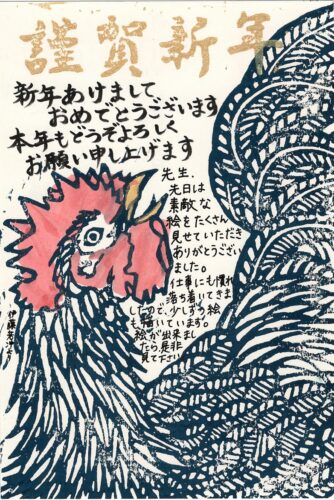 謹賀新年
新年あけまして
おめでとうございます
本年もどうぞよろしく
お願い申し上げます
先生、
先日は
素敵な
絵をたくさん
見せていただき
ありがとうござい
ました。
仕事にも慣れ
落ち着いてきま
したので、少しずつ絵
も描いています。
絵が出来まし
たら是非
見て下さい